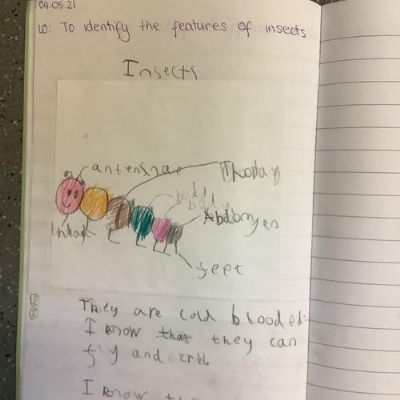 04.05.21
LO: To identify the features of insects
Insects
antennae
body
body
Abdomen
feet
They are cold blooded.
I know that they can
fly and
I know